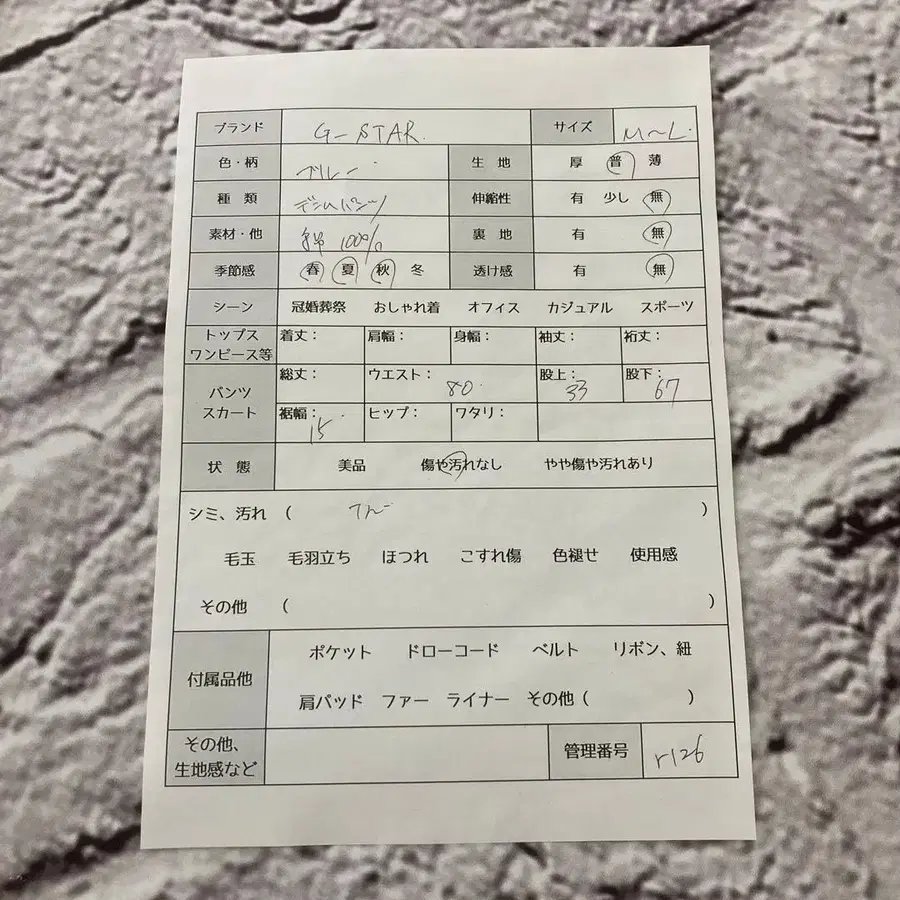 ブランド G-STAR. サイズ M~L.
色・柄 ブルー 生地 厚 普 薄
種類 デニムパンツ 伸縮性 有 少し 無
素材・他 綿 100% 裏地 有 無
季節感 春 夏 秋 冬 透け感 有 無
シーン 冠婚葬祭 おしゃれ着 オフィス カジュアル スポーツ
トップス ワンピース等 着丈: 肩幅: 身幅: 袖丈: 裄丈:
パンツ スカート 総丈: ウエスト: 80. 股上: 33 股下: 67
裾幅: 15 ヒップ: ワタリ:
状態 美品 傷や汚れなし やや傷や汚れあり
シミ、汚れ ( )
毛玉 毛羽立ち ほつれ こすれ傷 色褪せ 使用感
その他 ( )
付属品他 ポケット ドローコード ベルト リボン、紐
肩パッド ファー ライナー その他 ( )
その他、
生地感など 管理番号 r126